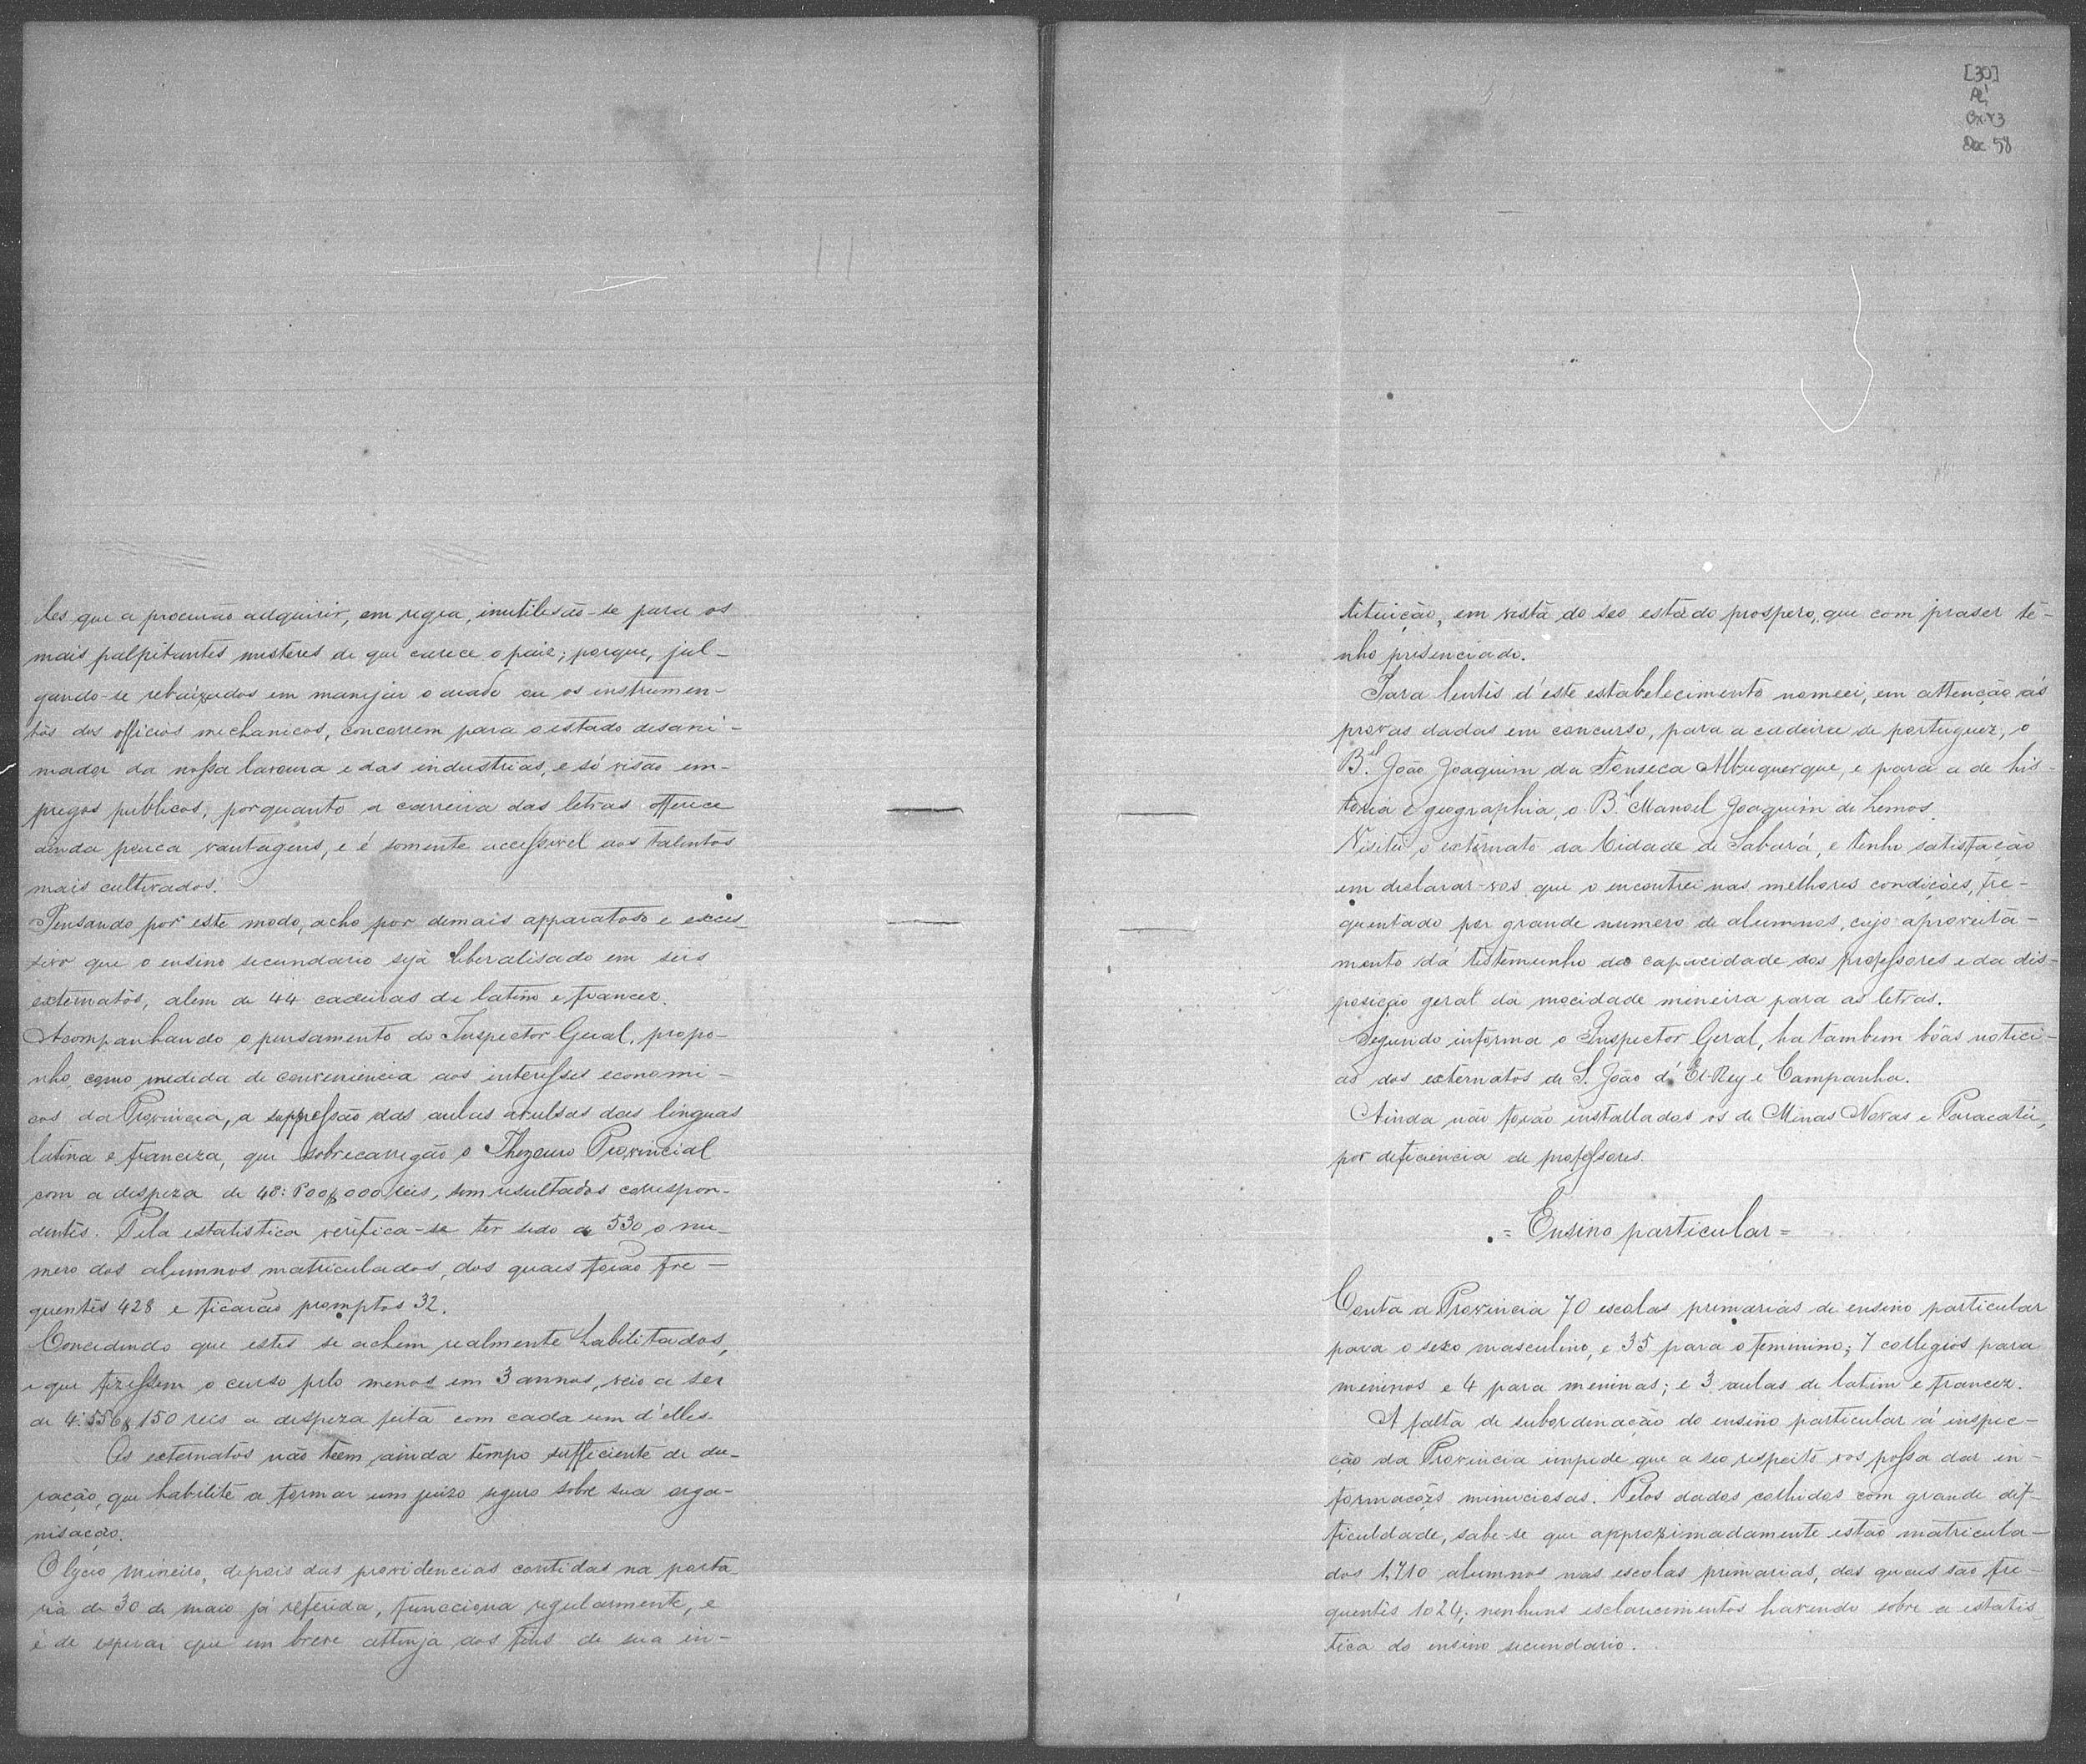 les que a procurão adquirir, em regra, inutilisão-se para os
mais palpitantes misteres de que carece o paiz; porque, jul-
gando-se rebaixados em manejar o arado ou os instrumen-
tos dos officios mechanicos, concorrem para o estado desani-
mador da nossa lavoura e das industrias, e só visão em-
pregos publicos, porquanto a carreira das letras offerece
ainda pouca vantagens, e é somente accessivel aos talentos
mais cultivados.
Pensando por este modo, acho por demais apparatoso e exces-
sivo que o ensino secundario seja liberalisado em seis
externatos, alem de 44 cadeiras de latim e francez.
Acompanhando o pensamento do Inspector Geral, propo-
nho como medida de conveniencia aos interesses economi-
cos da Provincia, a suppressão das aulas avulsas das linguas
latina e franceza, que sobrecarregão o Thezouro Provincial
com a despeza de 48:800$000 reis, sem resultados correspon-
dentes. Pela estatistica verifica-se ter sido de 530 o nu-
mero dos alumnos matriculados, dos quaes forão fre-
quentes 428 e ficarão promptos 32.
Concedendo que estes se achem realmente habilitados,
e que fizessem o curso pelo menos em 3 annos, veio a ser
de 4:556$150 reis a despeza feita com cada um d'elles
Os externatos não tem ainda tempo sufficiente de du-
ração, que habilite a formar um juizo seguro sobre sua orga-
nisação.
O lyceo mineiro, depois das providencias contidas na porta-
ria de 30 de maio já referida, funcciona regularmente, e
é de esperar que em breve attinja aos fins de sua in-
[30]
Cx. 03
Doc 58
tituição, em vista do seo estado prospero, que com praser te-
nho presenciado.
Para lentes d'este estabelecimento nomeei, em attenção ás
provas dadas em concurso, para a cadeira de portuguez, o
B.el João Joaquim da Fonseca Albuquerque, e para a de his-
toria e geographia, o B.el Manoel Joaquim de Lemos.
Visitei o externato da Cidade de Sabará, e tenho satisfação
em declarar-vos que o encontrei nas melhores condições, fre-
quentado por grande numero de alumnos, cujo aproveita-
mento dá testemunho da capacidade dos professores e da dis-
posição geral da mocidade mineira para as letras.
Segundo informa o Inspector Geral, ha tambem bôas notici-
as dos externatos de S. João d'El-Rey e Campanha.
Ainda não forão installados os de Minas Novas e Paracatú,
por deficiencia de professores.
= Ensino particular =
Conta a Provincia 70 escolas primarias de ensino particular
para o sexo masculino, e 35 para o feminino; 7 collegios para
meninos e 4 para meninas; e 3 aulas de latim e francez.
A falta de subordenação do ensino particular á inspec-
ção da Provincia impede que a seo respeito vos possa dar in-
formações minuciosas. Pelos dados colhidos com grande dif-
ficuldade, sabe-se que approximadamente estão matricula-
dos 1,710 alumnos nas escolas primarias, dos quaes são fre-
quentes 1024; nenhuns esclarecimentos havendo sobre a estatis-
tica do ensino secundario.